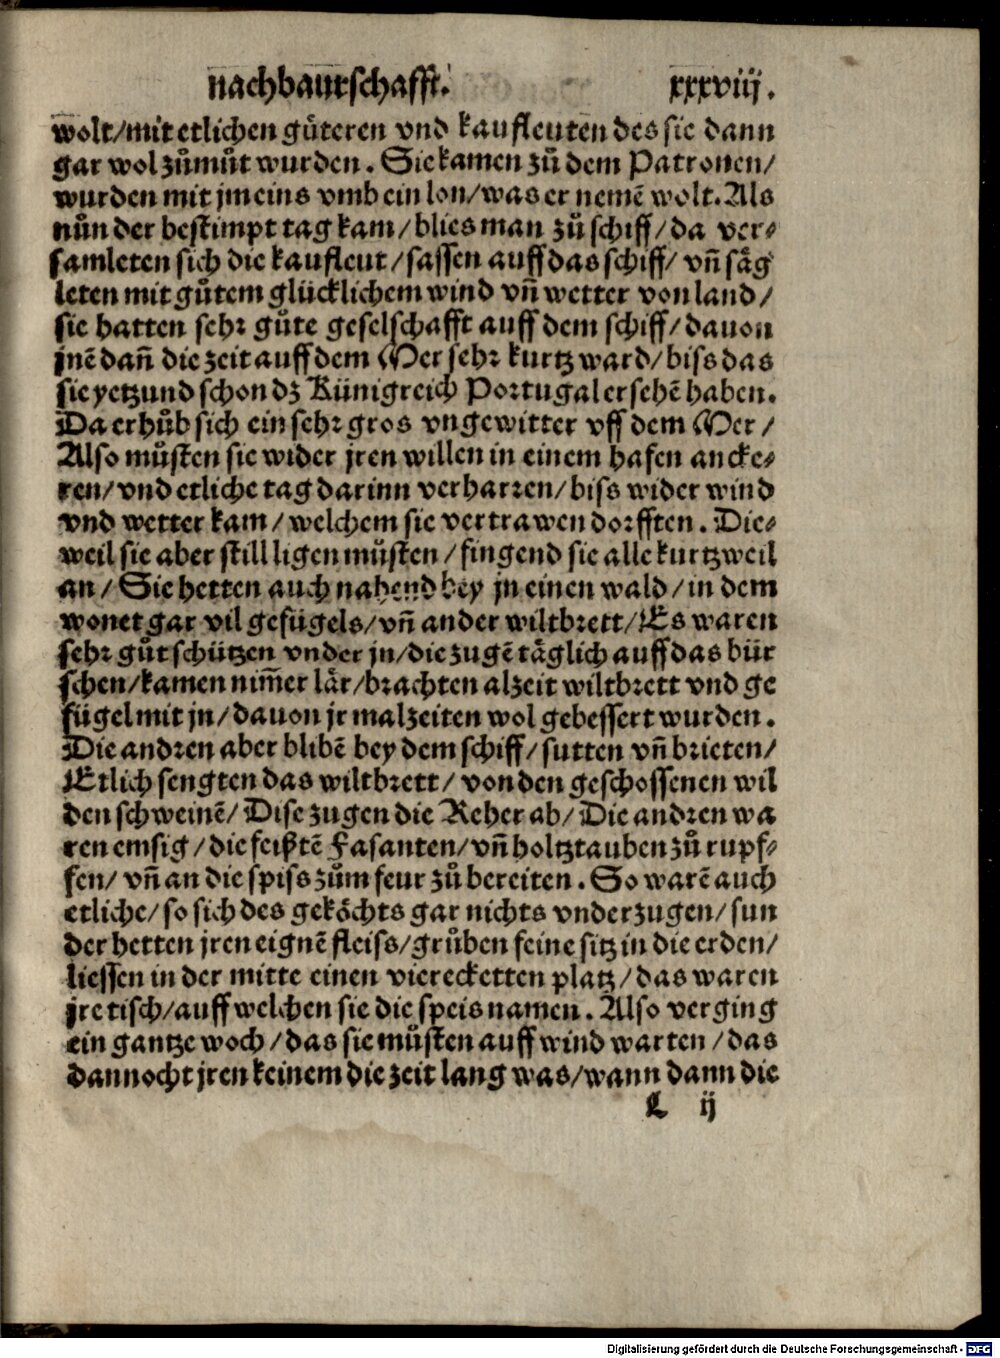 nachbaurschafft. xxxviij.
wolt/mit etlichen gůteren vnd kaufleuten des sie dann
gar wol zůmůt wurden. Sie kamen zů dem Patronen/
wurden mit jm eins vmb ein lon/was er nemē wolt. Als
nůn der bestimpt tag kam/blies man zů schiff/da ver⸗
samleten sich die kaufleut/sassen auff das schiff/vñ säg
leten mit gůtem glücklichem wind vñ wetter von land/
sie hatten sehr gůte geselschafft auff dem schiff/dauon
jnē dañ die zeit auff dem Mer sehr kurtz ward/biss das
sie yetzund schon dz Künigreich Portugal ersehē haben.
Da erhůb sich ein sehr gros vngewitter vff dem Mer/
Also můsten sie wider jren willen in einem hafen ancke⸗
ren/vnd etliche tag darinn verharren/biss wider wind
vnd wetter kam/welchem sie vertrawen dorfften. Die⸗
weil sie aber still ligen můsten/fingend sie alle kurtzweil
an/Sie hetten auch nahend bey jn einen wald/in dem
wonet gar vil gefügels/vñ ander wiltbrett/Es waren
sehr gůt schützen vnder jn/die zugē täglich auff das bür
schen/kamen nim̄er lär/brachten alzeit wiltbrett vnd ge
fügel mit jn/dauon jr malzeiten wol gebessert wurden.
Die andren aber blibē bey dem schiff/sutten vñ brieten/
Etlich sengten das wiltbrett/von den geschossenen wil
den schweinē/Dise zugen die Reher ab/Die andren wa
ren emsig/die feißtē Fasanten/vñ holtztauben zů rupf⸗
fen/vñ an die spiss zům feur zů bereiten. So warē auch
etliche/so sich des geköchts gar nichts vnderzugen/sun
der hetten jren eignē fleiss/grůben feine sitz in die erden/
liessen in der mitte einen viereckettten platz/das waren
jre tisch/auff welchen sie die speis namen. Also verging
ein gantze woch/das sie můsten auff wind warten/das
dannocht jren keinem die zeit lang was/wann dann die
L ij
Digitalisierung gefördert durch die Deutsche Forschungsgemeinschaft - DFG